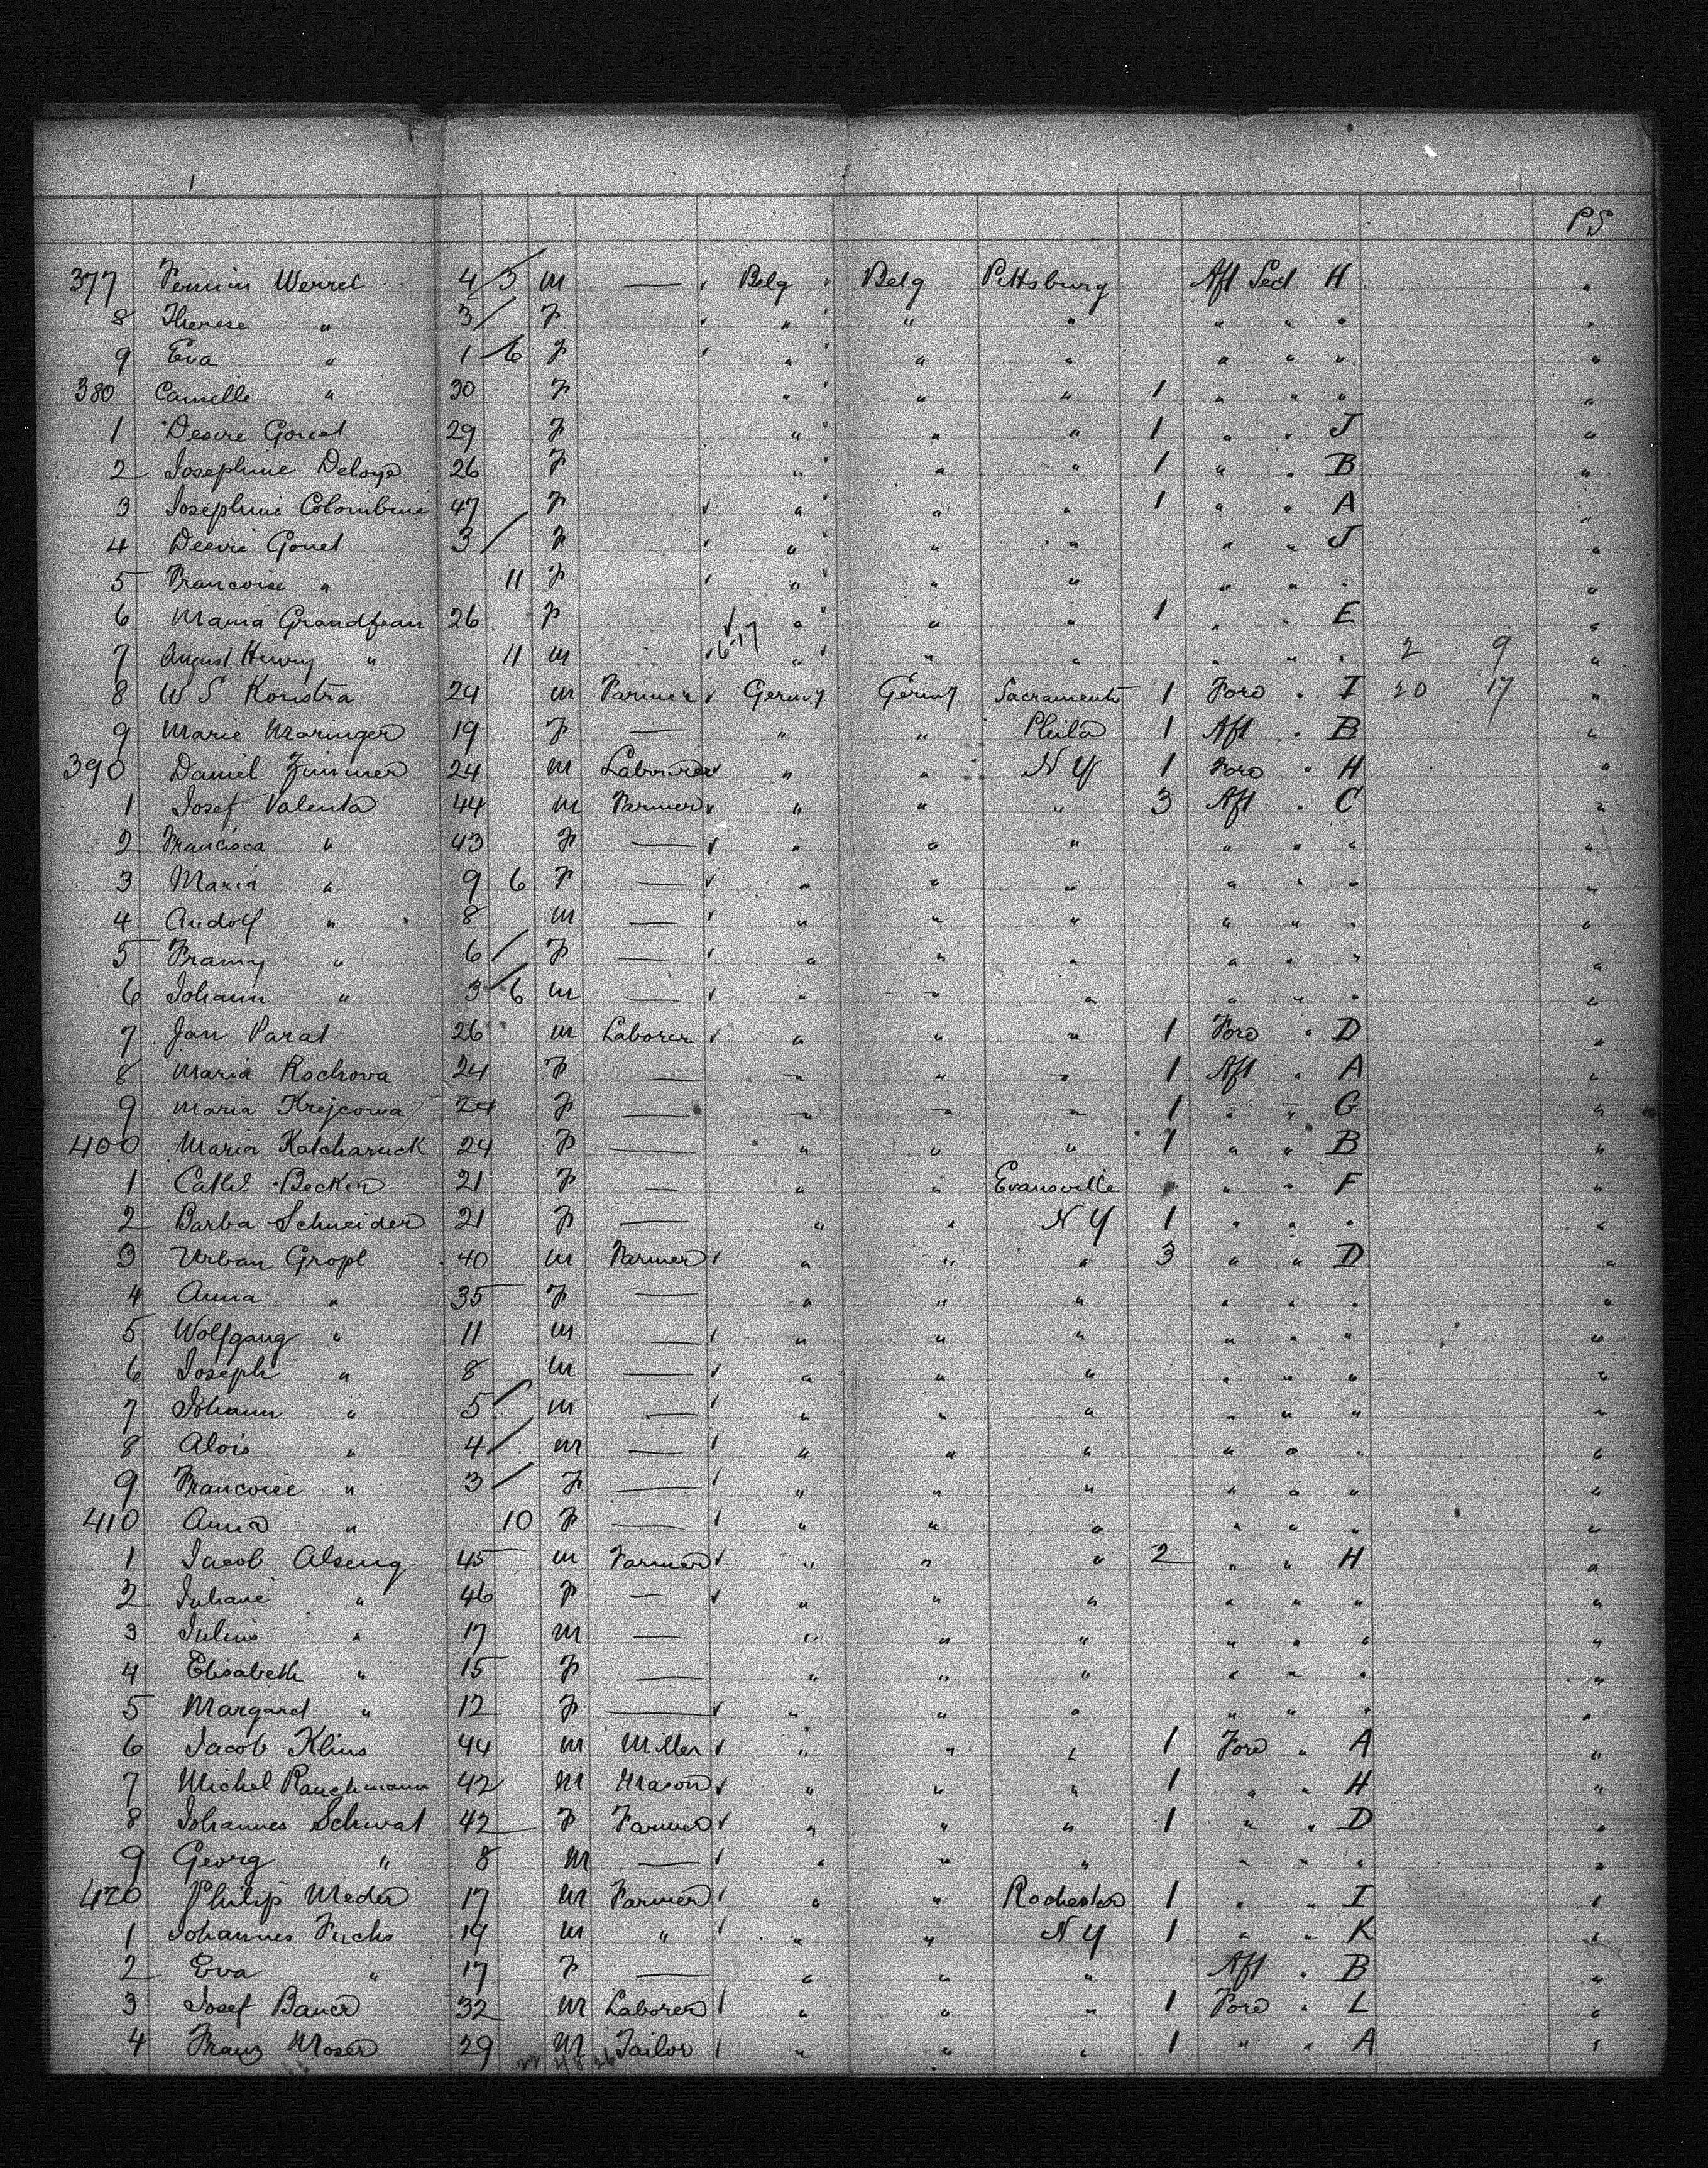 PS
377 Fermin Werrel 4/5 m — Belg Belg Pittsburg Aft Sect H "
8 Therese " 3/ F " " " " " " "
9 Eva " 1/6 F " " " " " " "
380 Camille " 30 F " " " 1 " " " "
1 Desire Gonet 29 F " " " 1 " " J "
2 Josephine Deloye 26 F " " " 1 " " B "
3 Josephine Colombine 47 F " " " 1 " " A "
4 Desire Gonet 3/ F " " " " " J "
5 Francoise " 11 F " " " " " " "
6 Maria Grandjean 26 F " " " 1 " " E "
7 August Henry " 11 m 6-17 " " " " " " 2 9 "
8 W S Konstra 24 m Farmer Germy Germy Sacramento 1 Ford " I 20 17 "
9 Marie Maringer 19 F — " " Phila 1 Aft " B "
390 Daniel Zimmer 24 m Labourer " " N Y 1 Ford " H "
1 Josef Valenta 44 m Farmer " " " 3 Aft " C "
2 Francisca " 43 F — " " " " " " "
3 Maria " 9 6 F — " " " " " " "
4 Rudolf " 8 m — " " " " " " "
5 Franzy " 6/ F — " " " " " " "
6 Johann " 3/6 m — " " " " " " "
7 Jan Parat 26 m Laborer " " " 1 Ford " D "
8 Maria Rochova 24 F — " " " 1 Aft " A "
9 Maria Krejcowa 24 F — " " " 1 " " G "
400 Maria Katcharuck 24 F — " " " 1 " " B "
1 Cath. Becker 21 F — " " Evansville " " F "
2 Barba Schneider 21 F — " " N Y 1 " " " "
3 Urban Gropl 40 m Farmer " " " 3 " " D "
4 Anna " 35 F — " " " " " " "
5 Wolfgang " 11 m — " " " " " " "
6 Joseph " 8 m — " " " " " " "
7 Johann " 5/ m — " " " " " " "
8 Alois " 4/ m — " " " " " " "
9 Francoise " 3/ F — " " " " " " "
410 Anna " 10 F — " " " " " " "
1 Jacob Alseng 45 m Farmer " " " 2 " " H "
2 Juliane " 46 F — " " " " " " "
3 Julius " 17 m — " " " " " " "
4 Elisabeth " 15 F — " " " " " " "
5 Margaret " 12 F — " " " " " " "
6 Jacob Klins 44 m Miller " " " 1 Ford " A "
7 Michel Rauchmann 42 m Mason " " " 1 " " H "
8 Johannes Schwat 42 F Farmer " " " 1 " " D "
9 Georg " 8 m — " " " " " " "
420 Philip Meder 17 m Farmer " " Rochester 1 " " I "
1 Johannes Fuchs 19 m " " " N Y 1 " " K "
2 Eva " 17 F — " " " Aft " B "
3 Josef Bauer 32 m Laborer " " " 1 Ford " L "
4 Franz Moser 29 m Tailor " " " 1 " " A "